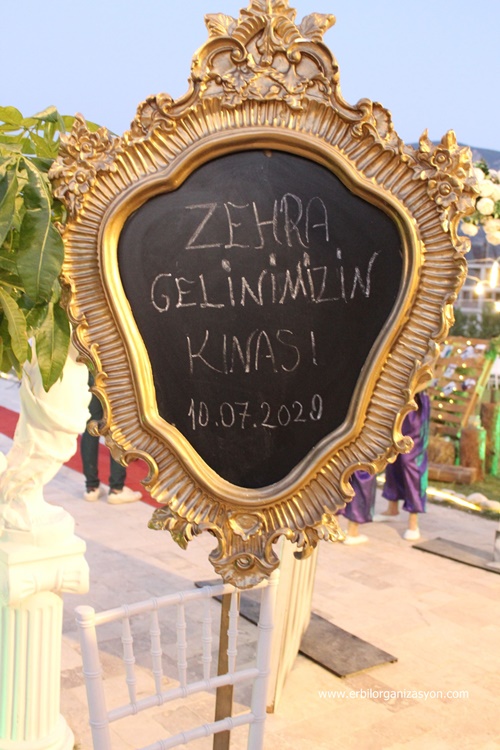 ZEHRA
GELİNİMİZİN
KINASI
10.07.2020
www.erbilorganizasyon.com